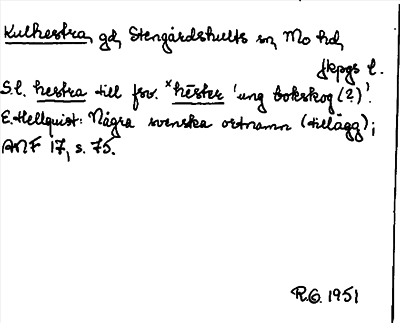 Kulhestra, gd, Stengårdshults sn, Mo hd,
Jkpgs l.
S.l. hestra till fsv. *hēster 'ung bokskog (?)'.
E. Hellquist: Några svenska ortnamn (tillägg);
ANF 17, s. 75.
R.G. 1951